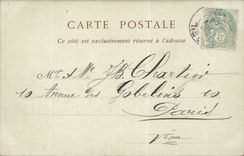 CARTE POSTALE
Ce côté est exclusivement réservé à l'adresse
Mr & Me J.B. Chartier
10 Avenue des Gobelins 10
Paris